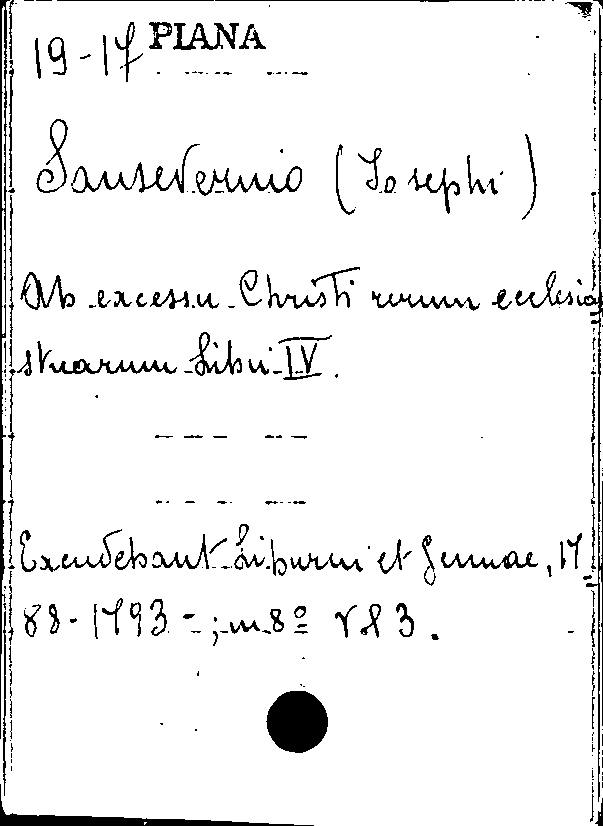 19-17 PIANA
Sanseverino (Josephi)
Ab excessu Christi rerum ecclesia
sticarum Libri IV.
Excudebant Liburni et Genuae, 17
88-1793-; in 8º vol 3.